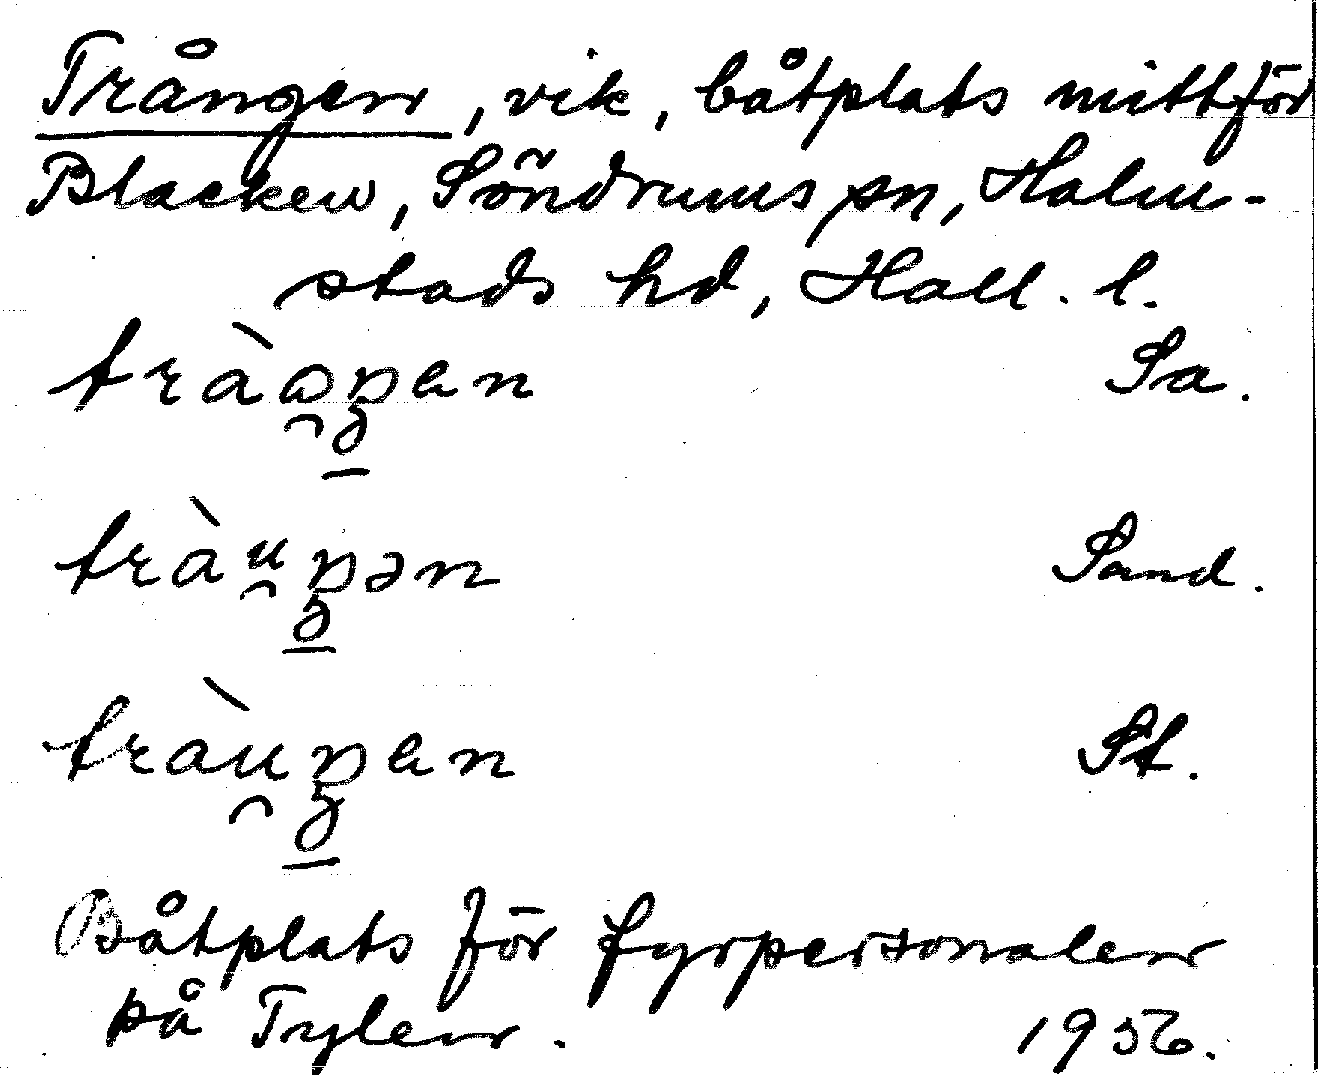 Trången, vik, båtplats mittför
Blacken, Söndrums sn, Halm-
stads hd, Hall. l.
Sa.
Sand.
St.
Båtplats för fyrpersonalen
på Tylen.
1956.